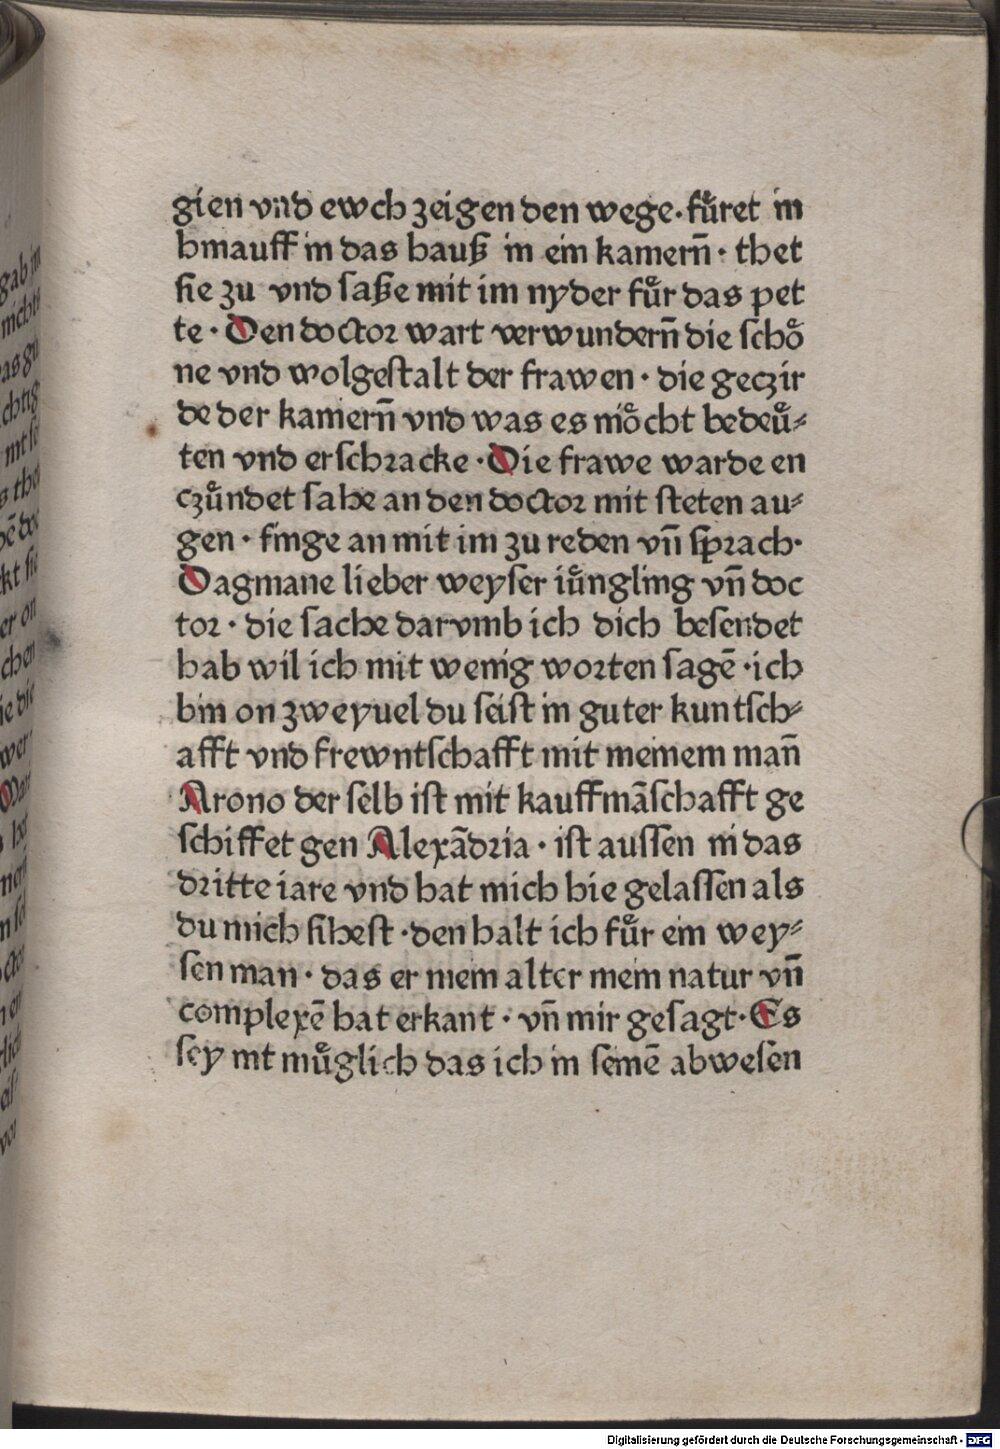 gien vnd ewch zeigen den wege · fuͤret in
hinauff in das hauß in ein kamern̄ · thet
sie zu vnd saße mit im nyder fuͤr das pet
te · Den doctor wart verwundern̄ die schoͤ
ne vnd wolgestalt der frawen · die geczir
de der kamern̄ vnd was es moͤcht bedeuͤ⸗
ten vnd erschracke · Die frawe warde en
czuͤndet sahe an den doctor mit steten au⸗
gen · finge an mit im zu reden vn̄ sprach ·
Dagmane lieber weyser iuͤngling vn̄ doc
tor · die sache darvmb ich dich besendet
hab wil ich mit wenig worten sagē · ich
bin on zweyuel du seist in guter kuntsch⸗
afft vnd frewntschafft mit meinem man̄
Arono der selb ist mit kauffmāschafft ge
schiffet gen Alexādria · ist aussen in das
dritte iare vnd hat mich hie gelassen als
du mich sihest · den halt ich fuͤr ein wey⸗
sen man · das er mein alter mein natur vn̄
complexē hat erkant · vn̄ mir gesagt · Es
sey nit muͤglich das ich in seinē abwesen
Digitalisierung gefördert durch die Deutsche Forschungsgemeinschaft - DFG